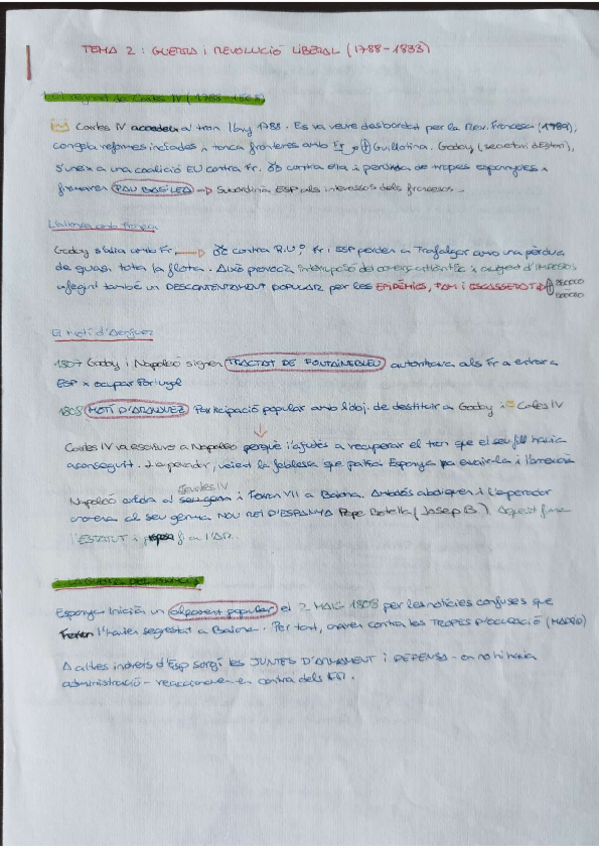 TEMA 2: GUERRA i REVOLUCIÓ LIBERAL (1788-1833)
de Carles IV (1788 - 1808)
Carles IV accedeix al tron l'any 1788. Es va veure desbordat per la Rev. Francesa (1789),
congela reformes iniciades x tanca fronteres amb Fr x Guillotina. Godoy (secretari d'Estat),
s'uneix a una coalició EU contra Fr. contra ella i pèrdua de tropes espanyoles x
firmaren PAU BASILEA → Subordinà ESP als interessos dels francesos.
L'aliança amb França
Godoy s'alia amb Fr → contra R.U, Fr i ESP perden a Trafalgar amb una pèrdua
de quasi tota la flota. Això provocà interrupció del comerç atlàntic i augment d'IMPOSTOS,
afegint també un DESCONTENTAMENT POPULAR per les EPIDÈMIES, FAM i ESCASSETAT
El motí d'Aranjuez
1807 Godoy i Napoleó signen TRACTAT DE FONTAINEBLEU autoritzava als Fr a entrar a
ESP x ocupar Portugal
1808 MOTÍ D'ARANJUEZ Participació popular amb l'obj. de destituir a Godoy i Carles IV
Carles IV va escriure a Napoleó perquè l'ajudés a recuperar el tron que el seu fill havia
aconseguit. L'emperador, veient la feblesa que patia Espanya va envair-la i
Carles IV
Napoleó i Ferran VII a Baiona. Ambdós abdiquen i l'emperador
anomena al seu germà NOU REI D'ESPANYA Pepe Botella (Josep B.)
l'ESTATUT i fi a l'AR.
Espanya inicià un alçament popular el 2 MAIG 1808 per les notícies confuses que
Ferran l'havien segrestat a Baiona. Per tant, anaren contra les TROPES D'OCUPACIÓ (MADRID)
A altres indrets d'Esp sorgí les JUNTES D'ARMAMENT i DEFENSA - on no hi havia
administració - reaccionaren en contra dels FR.